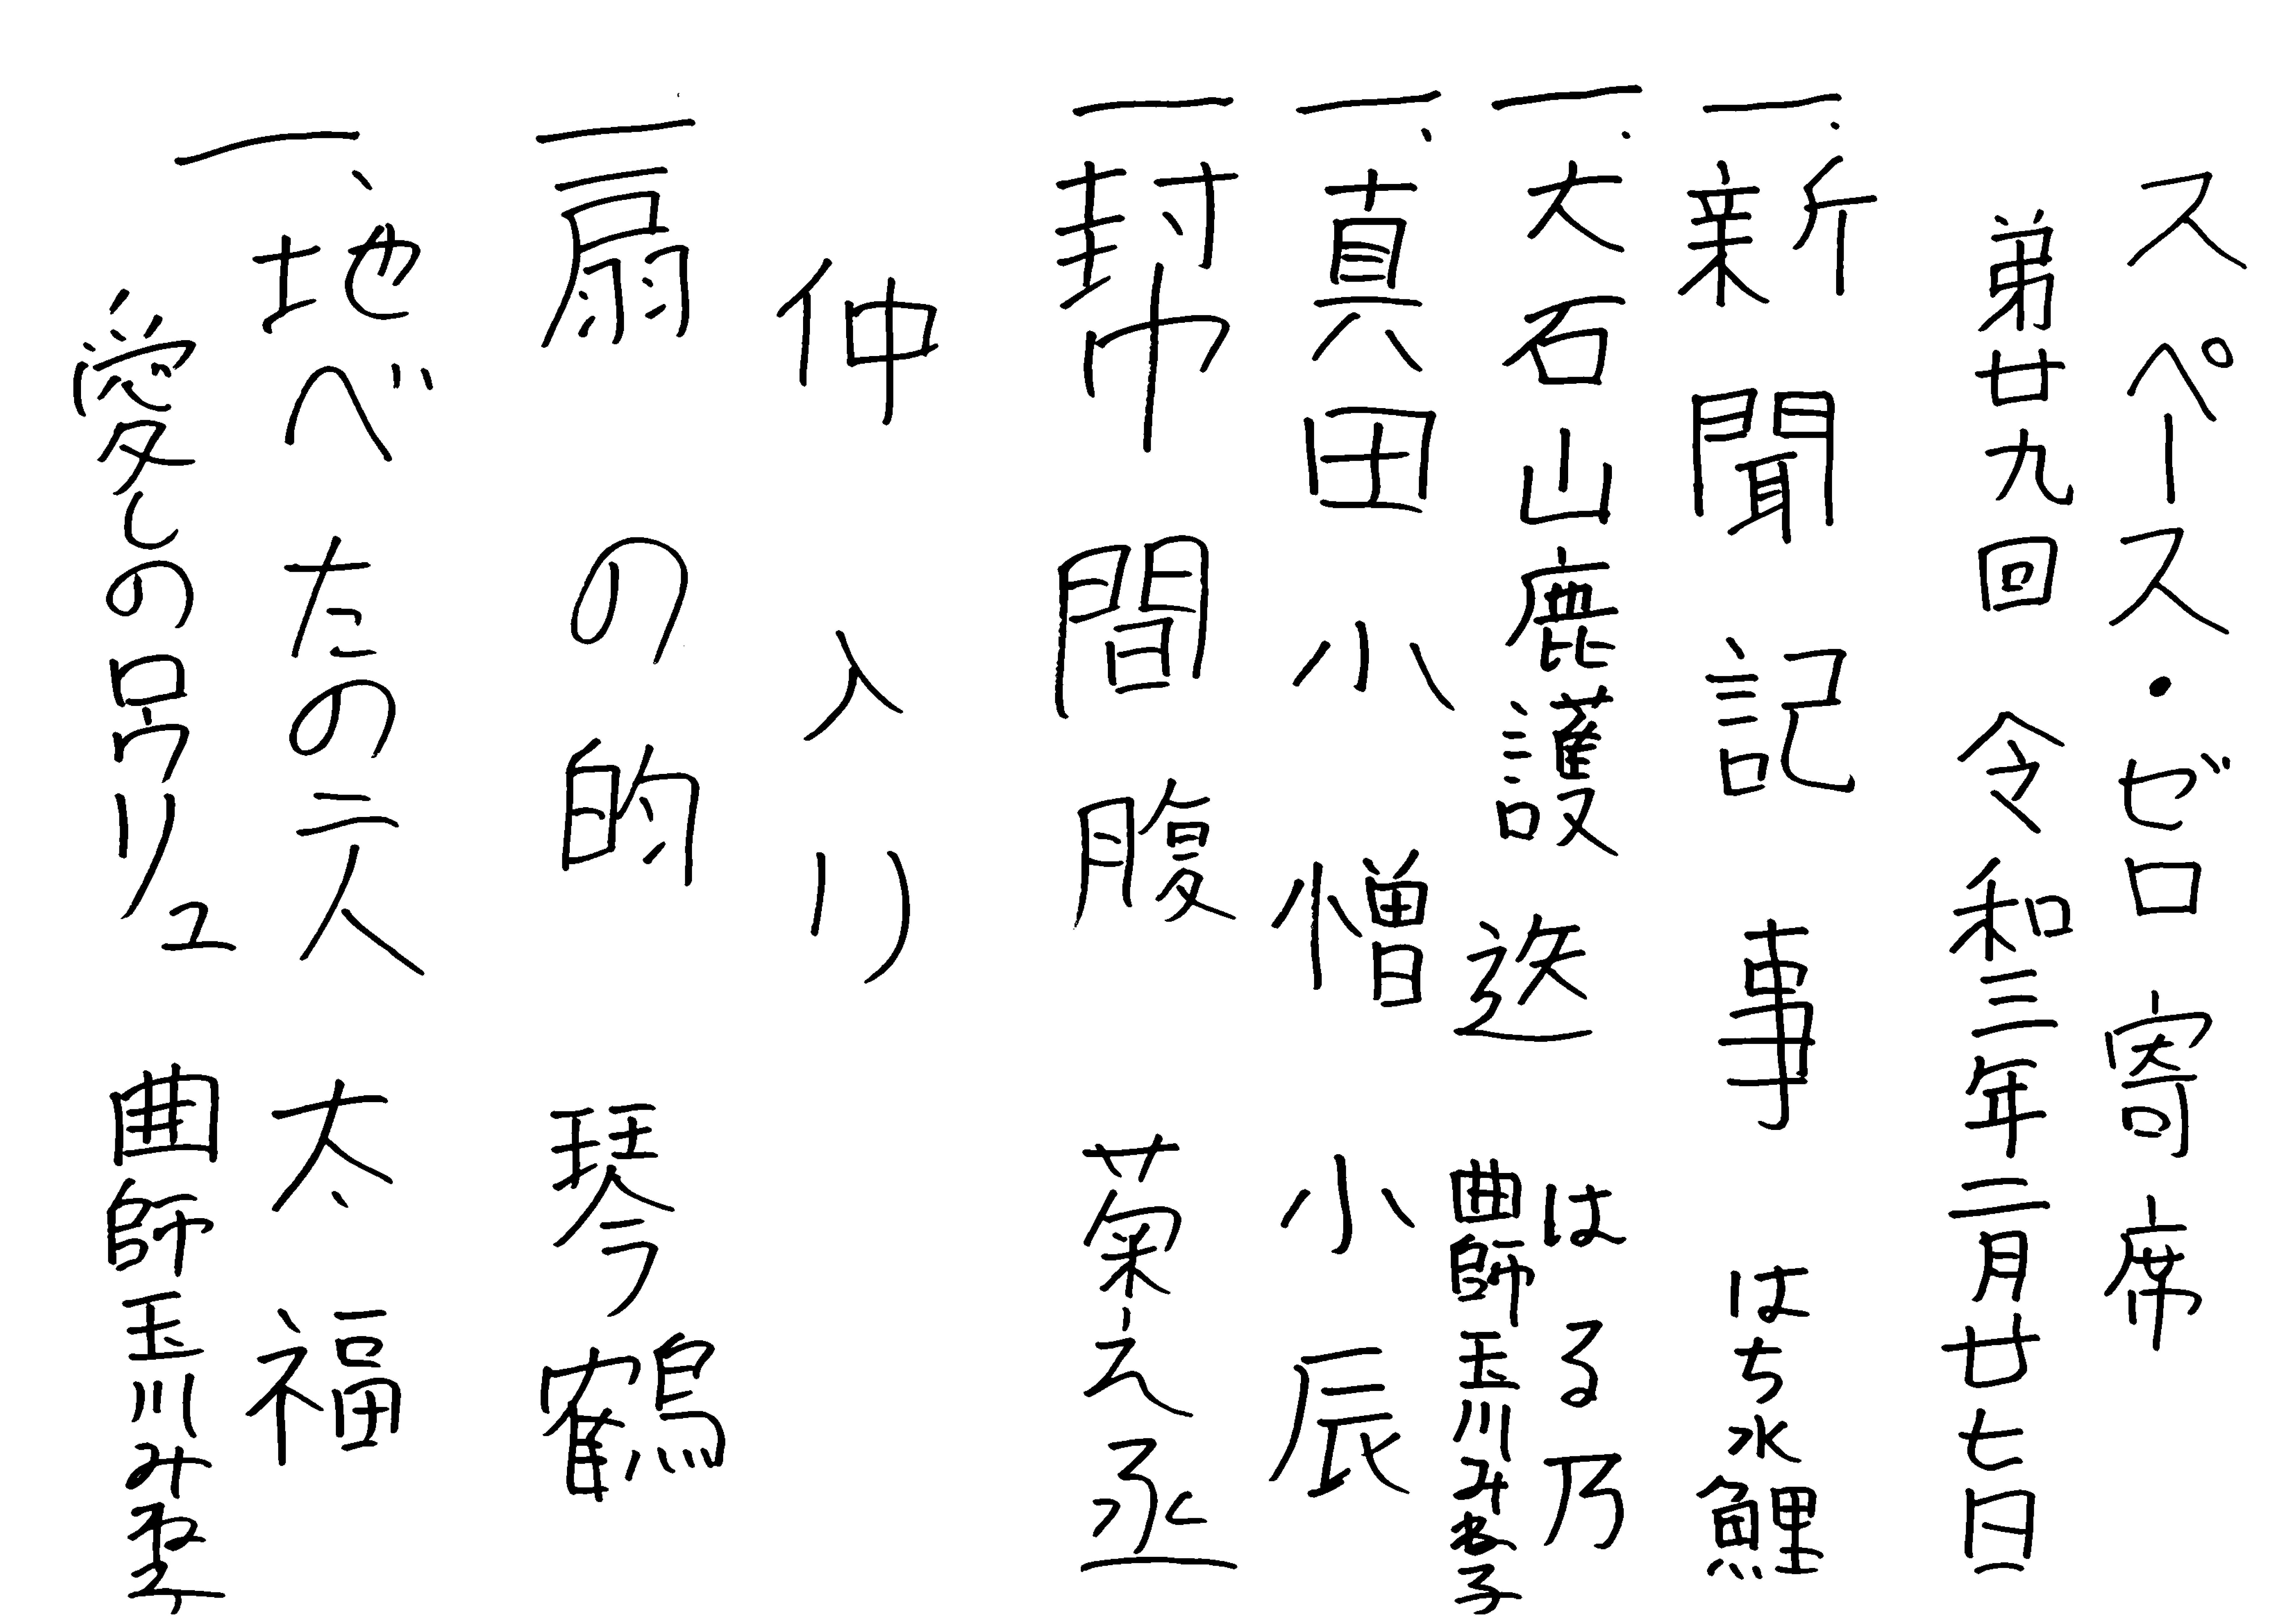 スペース・ゼロ寄席
弟廿九回 令和三年二月廿七日
一、新聞記事 はち水鯉
一、大石山鹿護送 はる乃
曲師玉川みね子
一、真田小僧 小辰
一 幇間腹 菊之丞
仲入り
一 扇の的 琴鶴
一、地べたの二人 太福
愛しのロウリュ 曲師玉川みね子